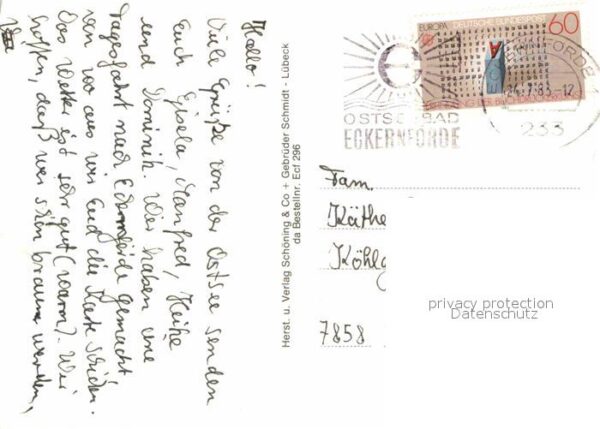 Hallo!
Viele Grüße von der Ostsee senden
Euch Gisela, Manfred, Heike
und Dominik. Wir haben eine
Tagesfahrt nach Eckernförde gemacht
von wo aus wir Euch die Karte schicken.
Das Wetter ist sehr gut (warm). Wir
hoffen, daß wir schön braun werden,
Herst. u. Verlag Schöning & Co + Gebrüder Schmidt - Lübeck
da Bestellnr. Ecf 296
EUROPA DEUTSCHE BUNDESPOST
60
24.7.83-12
233
OSTSEEBAD
ECKERNFÖRDE
Fam.
Käthe
Köhl
7858
privacy protection
Datenschutz